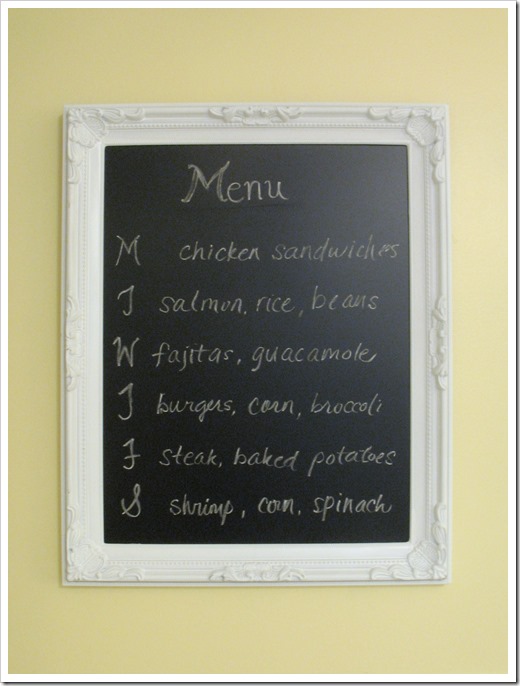 Menu
M chicken sandwiches
T salmon, rice, beans
W fajitas, guacamole
T burgers, corn, broccoli
F steak, baked potatoes
S shrimp, corn, spinach